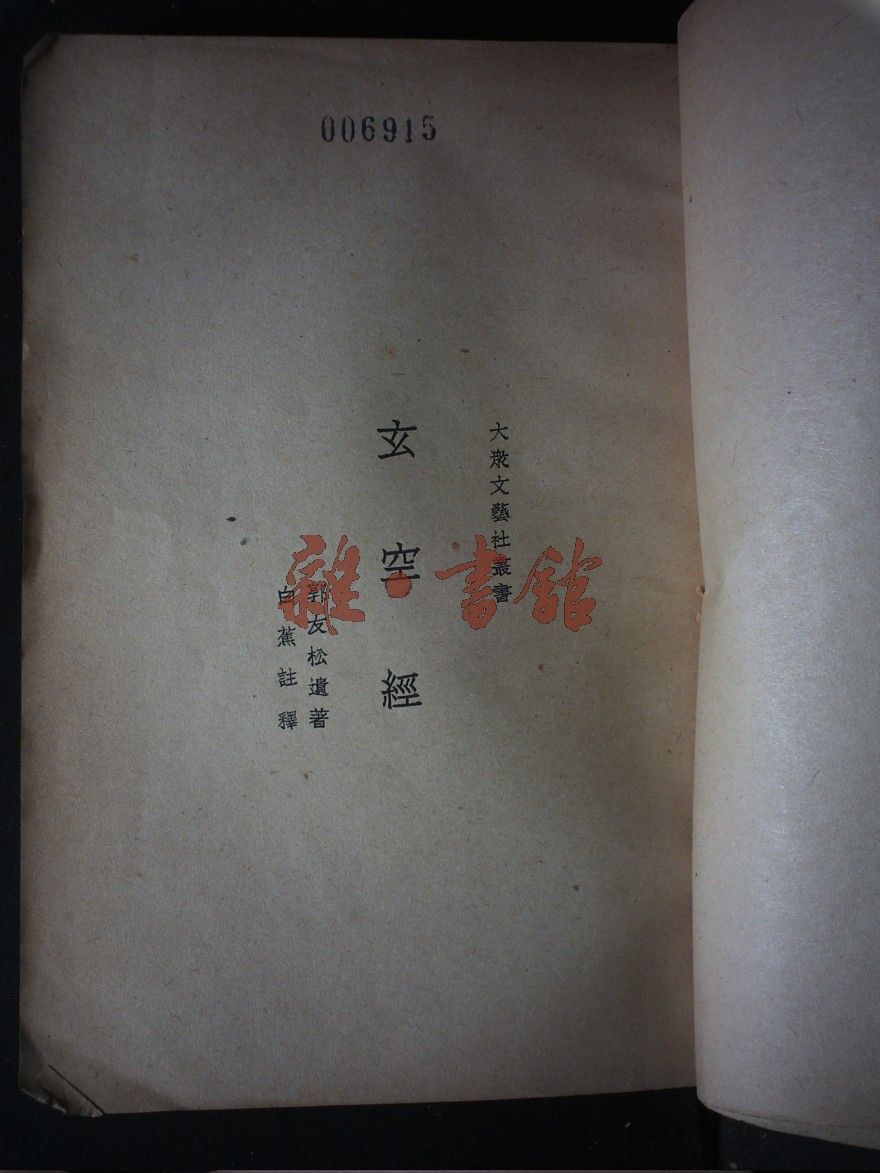 006915
大衆文藝社叢書
玄空經
郭友松遺著
白蕉註釋
雜·書館